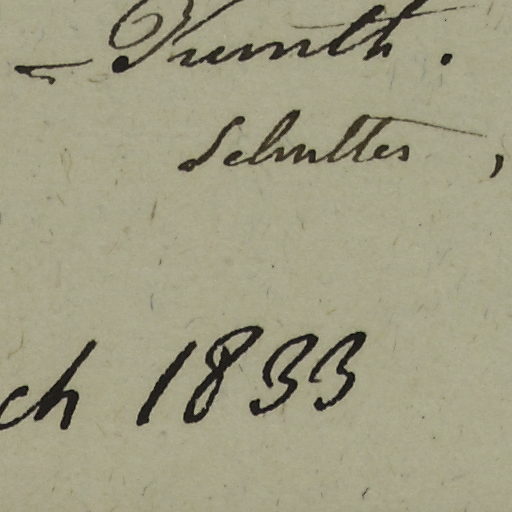 - Kunth.
Schultes,
ch 1833